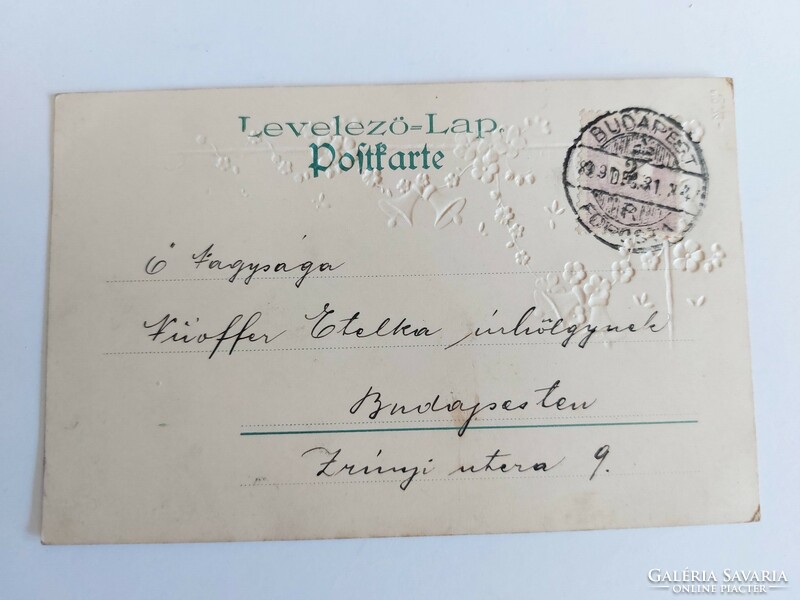 Levelező=Lap.
Postkarte
BUDAPEST
FŐPOSTA
Ő Nagysága
Etelka úrhölgynek
Budapesten
Zrínyi utcza 9.
GALÉRIA SAVARIA
ONLINE PIACTÉR